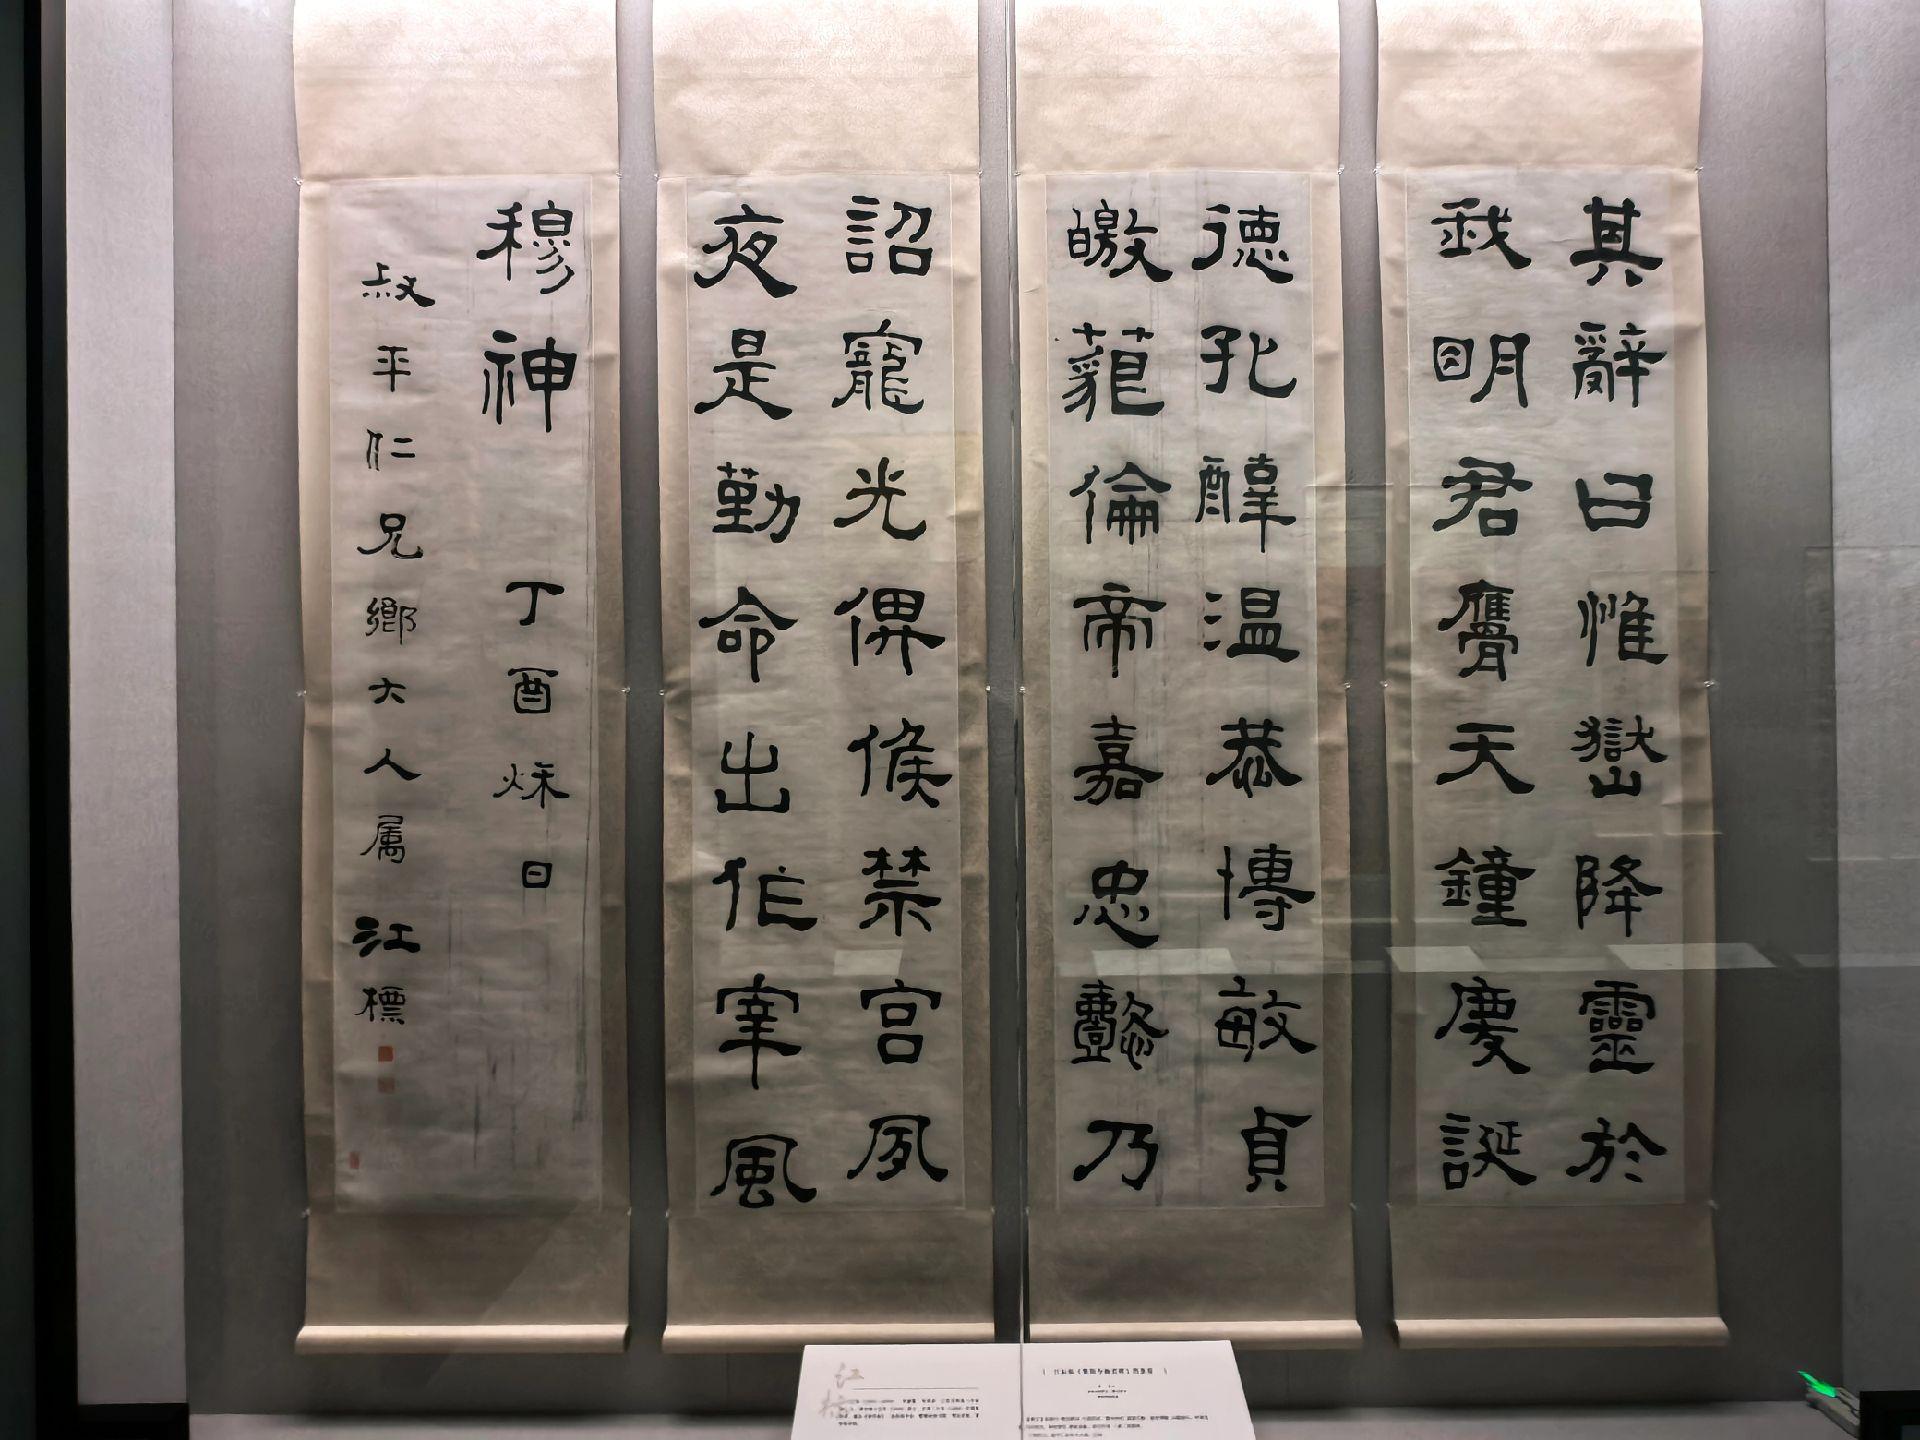 其辭曰惟嶽降靈於
我明君膺天鍾慶誕
德孔醇温恭博敏貞
皦藐倫帝嘉忠懿乃
詔寵光俾侯禁宫夙
夜是勤命出作宰風
穆神
丁酉秌日
叔平仁兄鄉大人属
江標
江標